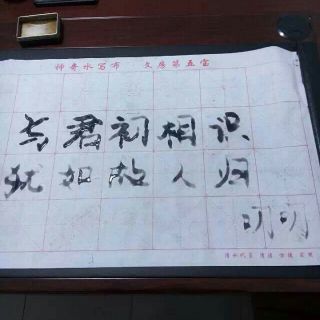 神奇水写布 文房第五宝
与君初相识
犹如故人归
明明